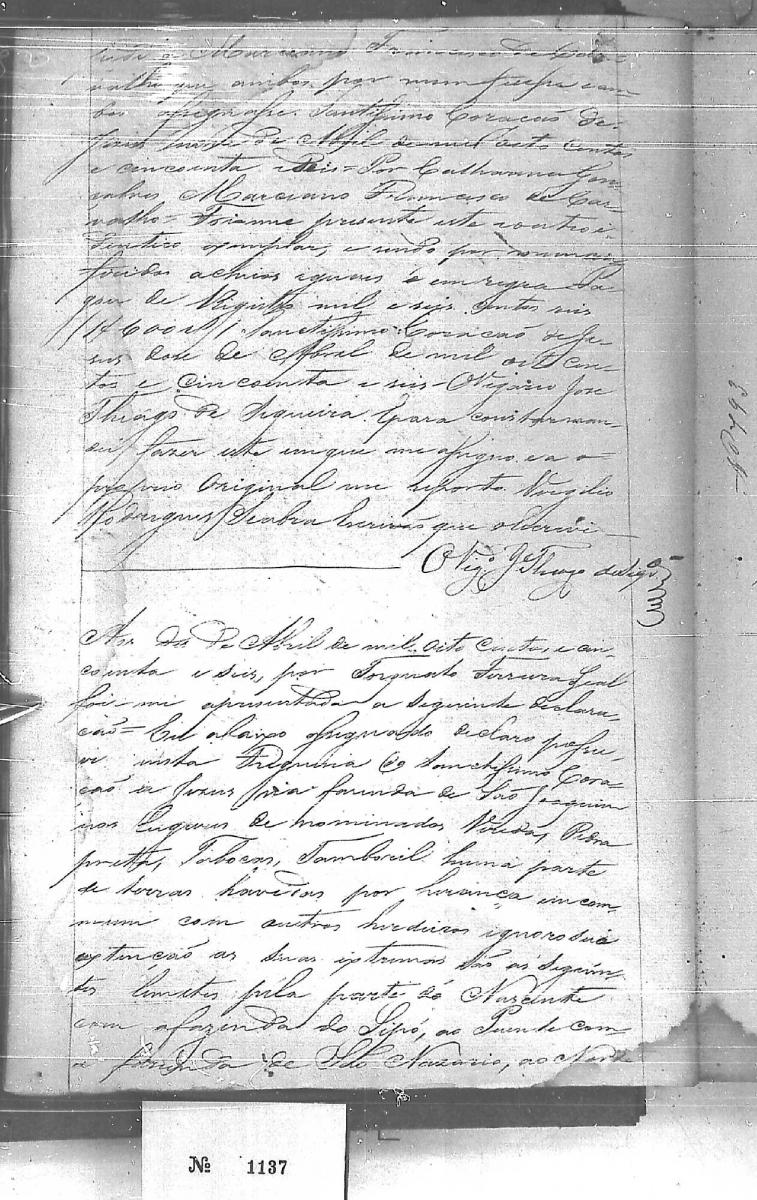 Marciano Francisco de Car
valho que ambos por
bos assignaſse. Santissimo Coração de
Jesus de Abril de mil oito centos
e cincoenta e seis = Por Catharina Gon
calves Marciano Francisco de Car
valho = Foi-me presente este e outro i
dentico exemplar, e sendo por mim
feridos achei-os iguaes e em regra Pa
gou de Registo mil e seis centos reis
1$600 rs Sanctissimo Coração de Je
sus dose de Abral de mil oito cen
tos e cincoenta e seis = O Vigario José
Thiago de Siqueira. E para constar man
dei fazer este em que me assigno e a o
proprio Original me reporto. Virgilio
Rodrigues Seabra Escrivão que o escrevi
O Vigº Jé Thiago de Siqrª
de Abril de mil oito centos e cin
coenta e seis, por Torquato Ferreira Leal
foi-mi apresentada a seguinte declara
cão = Eu abaixo assignado declaro possu
ir nesta Freguesia do Sanctissimo Cora
cão de Jesus na fazenda de São Joaquim
nos lugares denominados Vereda, Pedra
preta, Tabocas, Tamboril huma parte
de terras havidas por herança em com
mum com outros herdeiros ignoro sua
extenção as suas extremas são as seguin
tes limites pela parte do Nascente
com a fazenda do Sipó, ao Poente com
a fazenda de São Nazario, ao Norte
Nº 1137